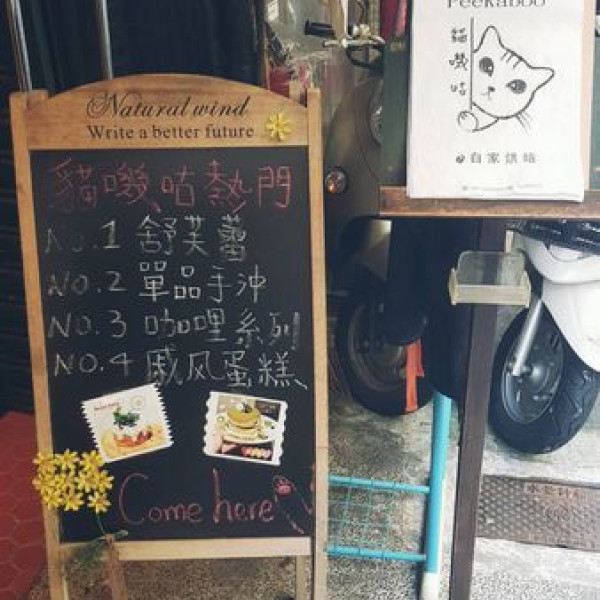 Natural wind
Write a better future
貓嘰咕熱門
No.1 舒芙蕾
No.2 單品手沖
No.3 咖哩系列
No.4 戚风蛋糕
Come here
Peekaboo
貓嘰咕
自家烘焙